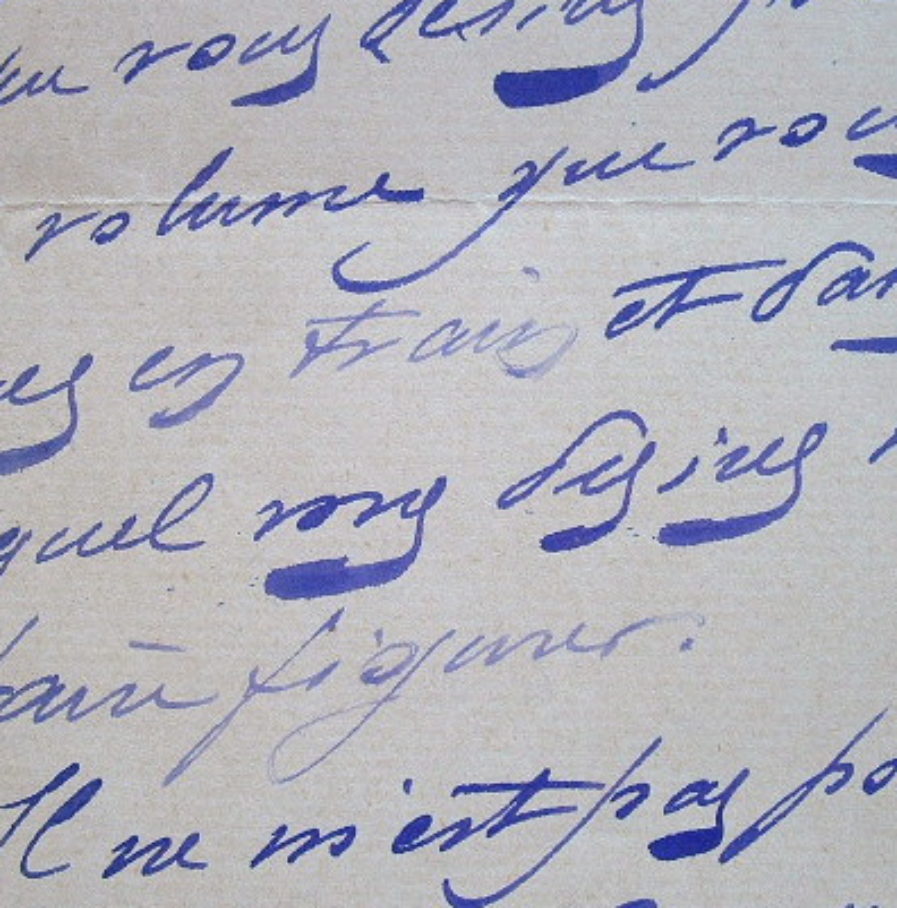 vous désirez
volume que vous
en train et dan
quel vous désirez
faire figurer.
Il ne m'est pas po